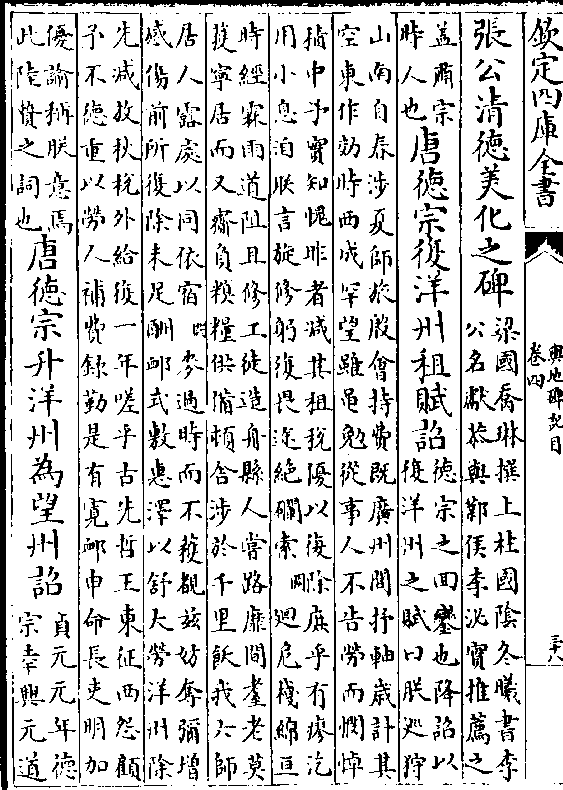 欽定四庫全書
輿地碑記目
卷四
三十八
張公清德美化之碑
梁國喬琳撰上柱國陰冬曦書李
公名獻恭與鄴侯李泌實推薦之
蓋肅宗
時人也
唐德宗復洋州租賦詔
德宗之回鑾也降詔以
復洋州之賦曰朕廵狩
山南自春涉夏師旅殷會持費既廣州閭抒軸歲計其
空東作妨時西成罕望雖黽勉從事人不告勞而憫悼
積中予實知愧昨者减其租稅優以復除庶乎有瘳汔
用小息洎朕言旋修躬復畏途絶磵索廻危棧綿亘
時經霖雨道阻且修工徒造舟縣人當路靡聞耋老莫
獲寧居而又齎負糗糧供備頓舍涉於千里飫我六師
居人露處以同依宿麥過時而不穫覩兹妨奪彌增
感傷前所復除未足酬卹式敷惠澤以舒大勞洋州除
先减放秋稅外給復一年嗟乎古先哲王東征西怨顧
予不德重以勞人補費錄勤是有寛卹申命長吏明加
優諭稱朕意焉
此陸贄之詞也
唐德宗升洋州為望州詔
貞元元年德
宗幸興元道